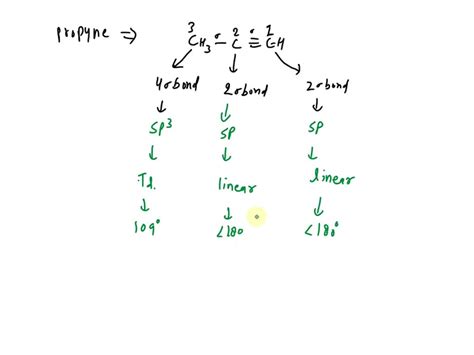 propyne ⇒
3 2 1
CH₃ –σ C ≡σ CH
4σbond 2σbond 2σbond
SP³ SP SP
Td. linear linear
109° <180 <180°